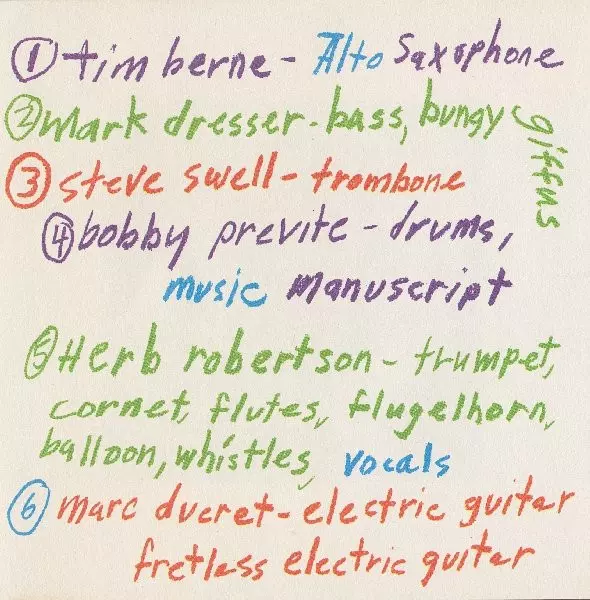 1 tim berne - Alto Saxophone
2 mark dresser - bass, bungy
giffus
3 steve swell - trombone
4 bobby previte - drums,
music manuscript
5 Herb robertson - trumpet,
cornet, flutes, flugelhorn,
balloon, whistles, vocals
6 marc ducret - electric guitar
fretless electric guitar